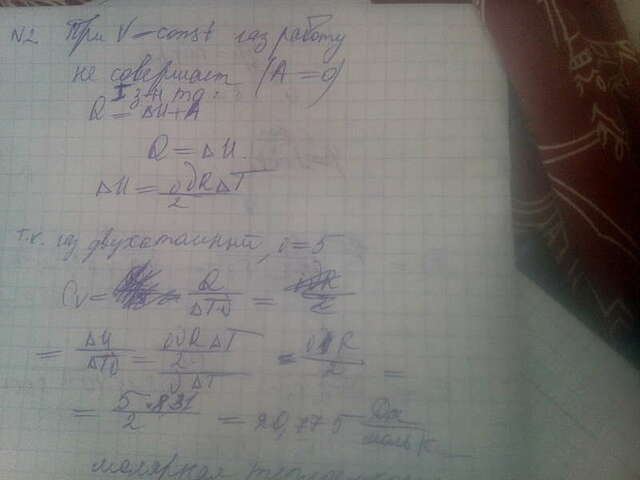 N2 При V-const газ работу
не совершает (A=0)
I з-н т.д:
Q = ΔU+A
Q = ΔU.
ΔU = iϑRΔT / 2
т.к. газ двухатомный, i=5
Cv = Q / ΔTϑ = iR / 2
= ΔU / ΔTϑ = iϑRΔT / 2 / ϑΔT = iR / 2 =
= 5·8,31 / 2 = 20,775 Дж / моль К
молярная